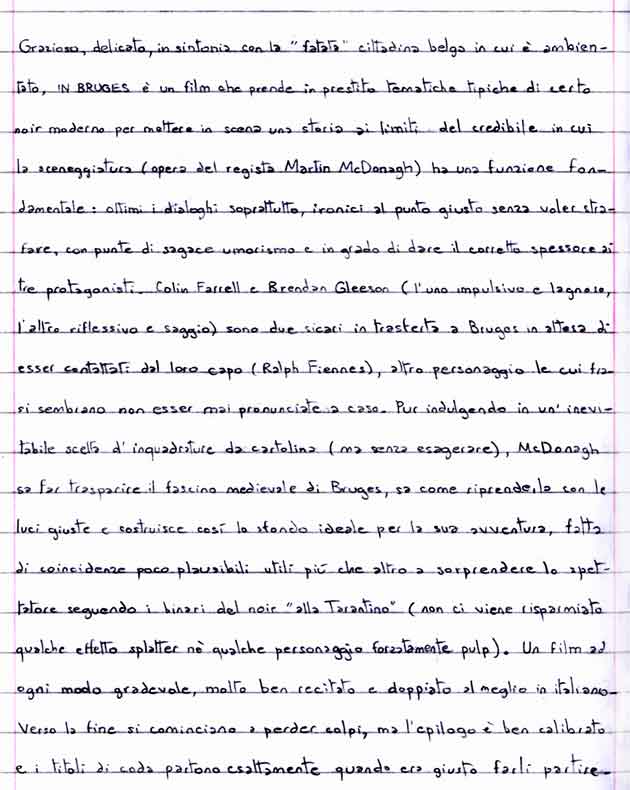 Grazioso, delicato, in sintonia con la "fatata" cittadina belga in cui è ambien-
tato, IN BRUGES è un film che prende in prestito tematiche tipiche di certo
noir moderno per mettere in scena una storia ai limiti del credibile in cui
la sceneggiatura (opera del regista Martin McDonagh) ha una funzione fon-
damentale: ottimi i dialoghi soprattutto, ironici al punto giusto senza voler stra-
fare, con punte di sagace umorismo e in grado di dare il corretto spessore ai
tre protagonisti. Colin Farrell e Brendan Gleeson (l'uno impulsivo e lagnoso,
l'altro riflessivo e saggio) sono due sicari in trasferta a Bruges in attesa di
esser contattati dal loro capo (Ralph Fiennes), altro personaggio le cui fra-
si sembrano non esser mai pronunciate a caso. Pur indulgendo in un'inevi-
tabile scelta d'inquadrature da cartolina (ma senza esagerare), McDonagh
sa far trasparire il fascino medievale di Bruges, sa come riprenderla con le
luci giuste e costruisce così lo sfondo ideale per la sua avventura, fatta
di coincidenze poco plausibili utili più che altro a sorprendere lo spet-
tatore seguendo i binari del noir "alla Tarantino" (non ci viene risparmiato
qualche effetto splatter nè qualche personaggio forzatamente pulp). Un film ad
ogni modo gradevole, molto ben recitato e doppiato al meglio in italiano.
Verso la fine si cominciano a perder colpi, ma l'epilogo è ben calibrato
e i titoli di coda partono esattamente quando era giusto farli partire.